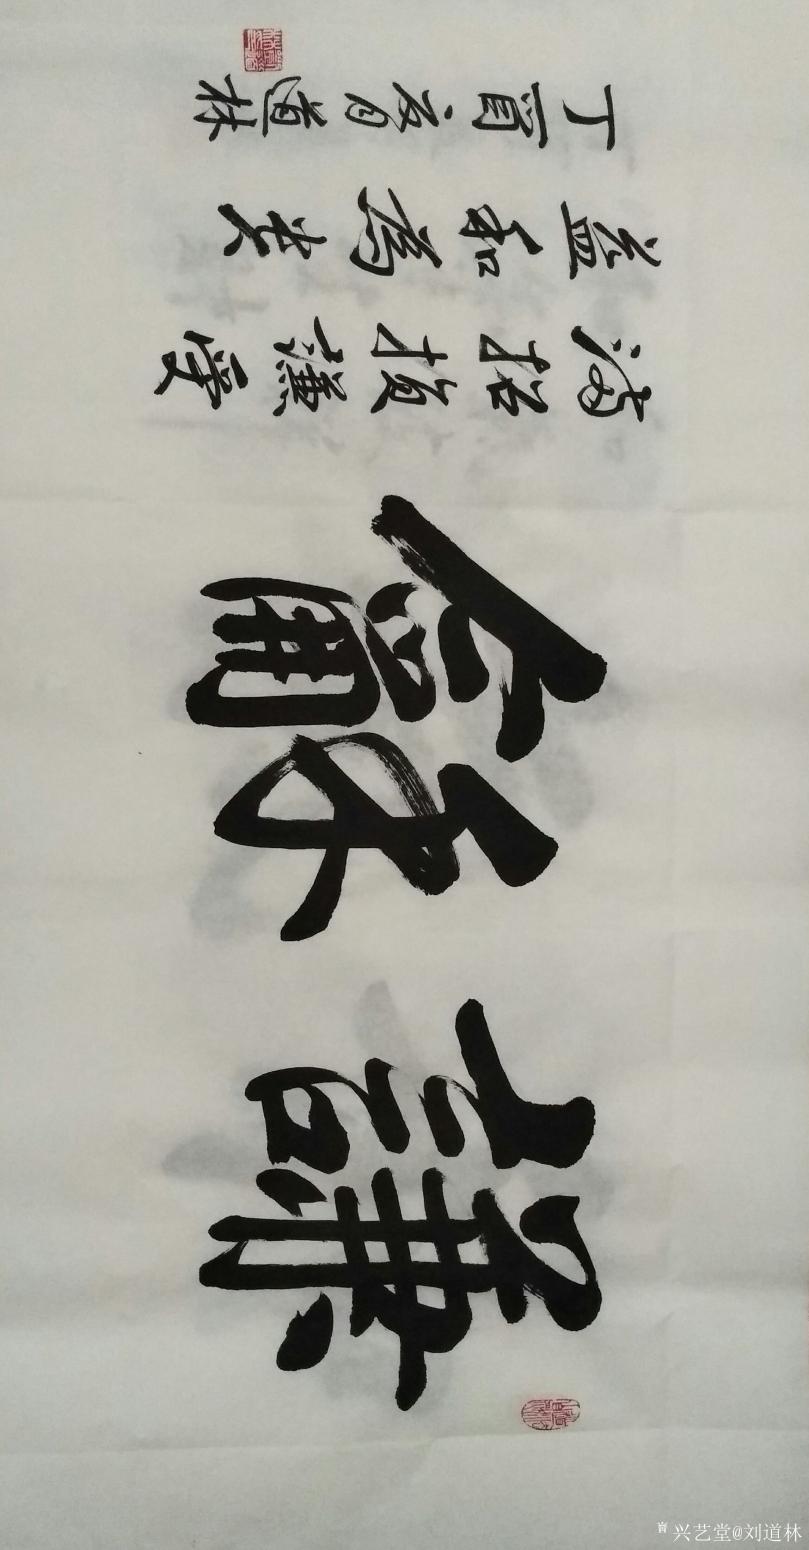 謙龢
滿招損謙受
益和為貴
丁酉 道林
兴艺堂@刘道林